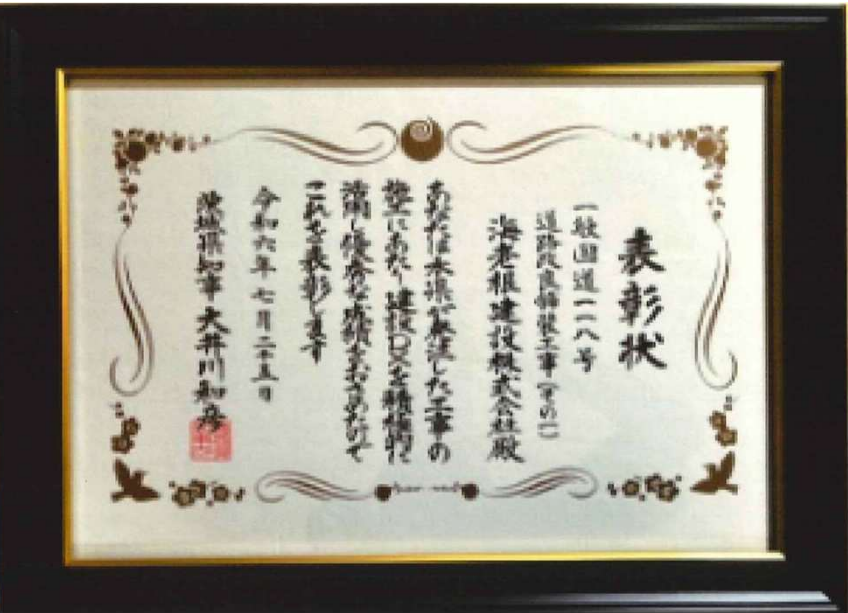 表彰状
一般国道一一八号
道路改良舗装工事(その一)
海老根建設株式会社殿
あなたは本県が発注した工事の
施工にあたり建設DXを積極的に
活用し優秀な成績をおさめたので
これを表彰します
令和六年七月二十五日
茨城県知事 大井川和彦